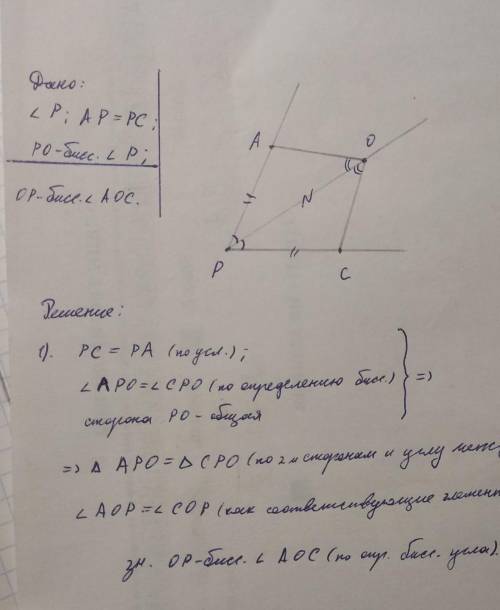 Дано:
∠ P; AP = PC;
PO-бисс. ∠ P;
OP-бисс. ∠ AOC.
A
O
N
P
C
Решение:
1). PC = PA (по усл.);
∠APO = ∠CPO (по определению бисс.)
сторона PO - общая
} =>
=> Δ APO = Δ CPO (по 2м сторонам и углу меж
∠ AOP = ∠ COP (как соответствующие элемент
зн. OP-бисс. ∠ AOC (по опр. бисс. угла).